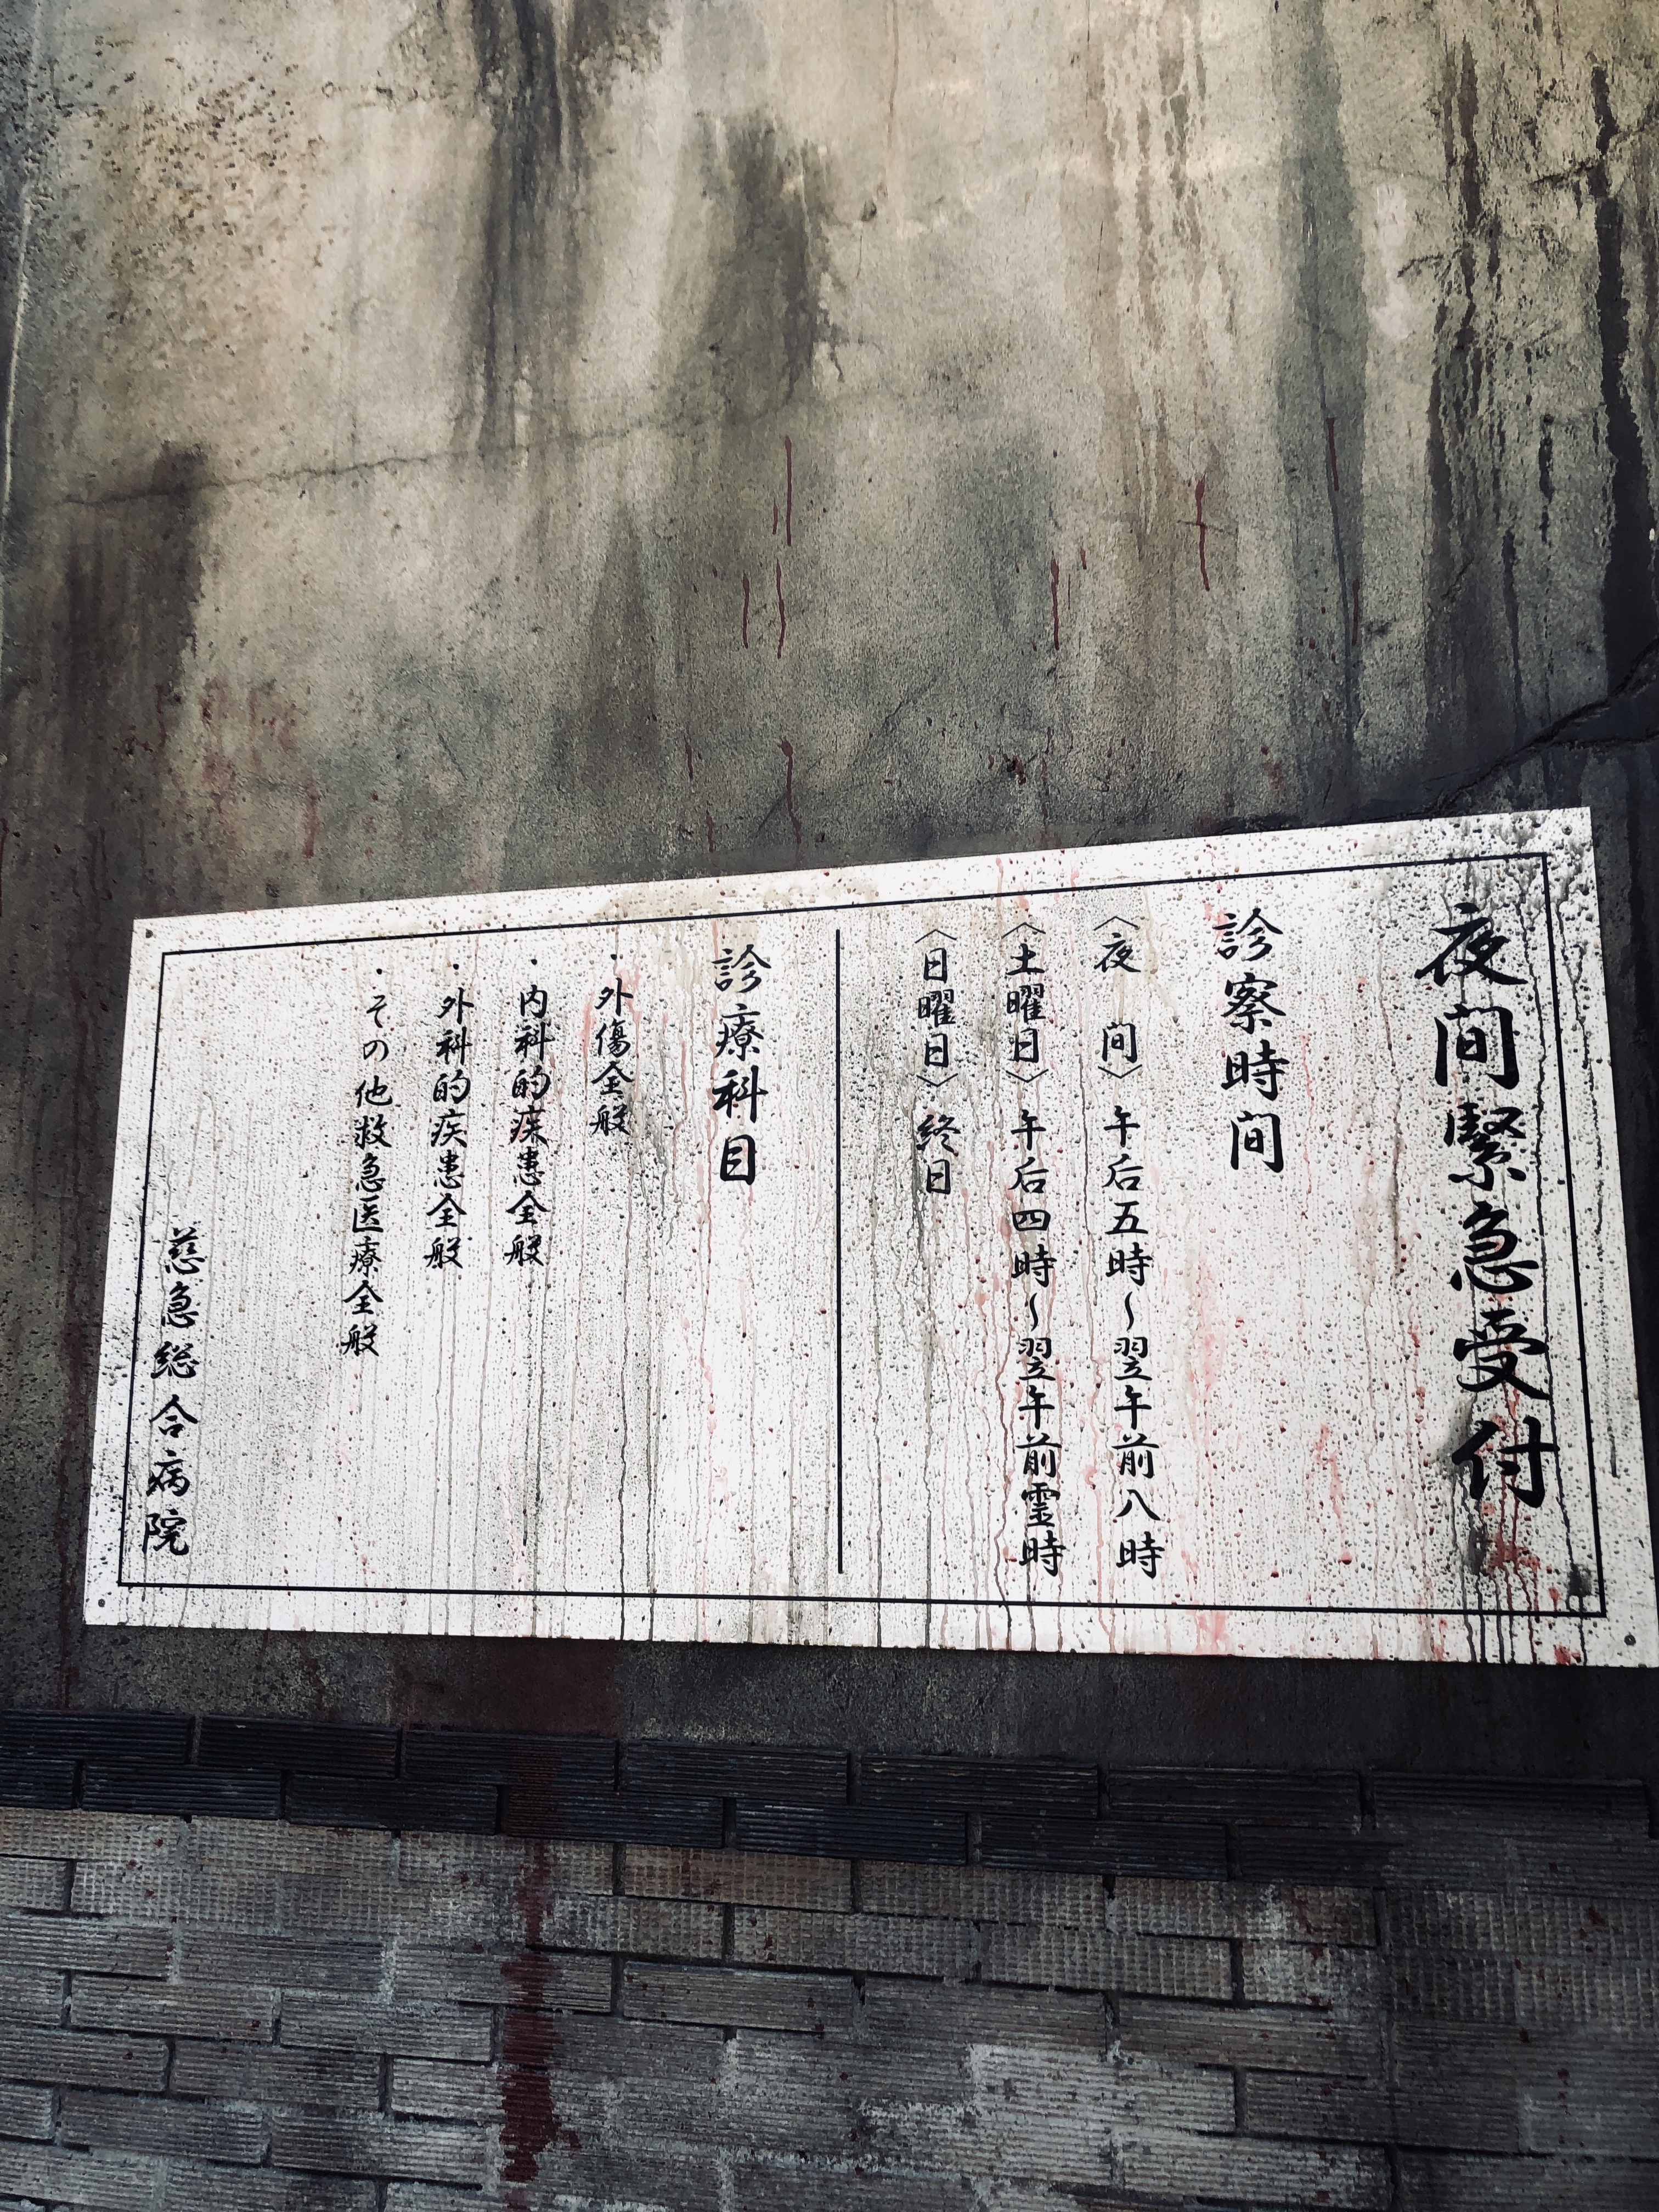 夜間緊急受付
診察時間
〈夜　間〉午后五時〜翌午前八時
〈土曜日〉午后四時〜翌午前霊時
〈日曜日〉終日
診療科目
・外傷全般
・内科的疾患全般
・外科的疾患全般
・その他救急医療全般
慈急総合病院